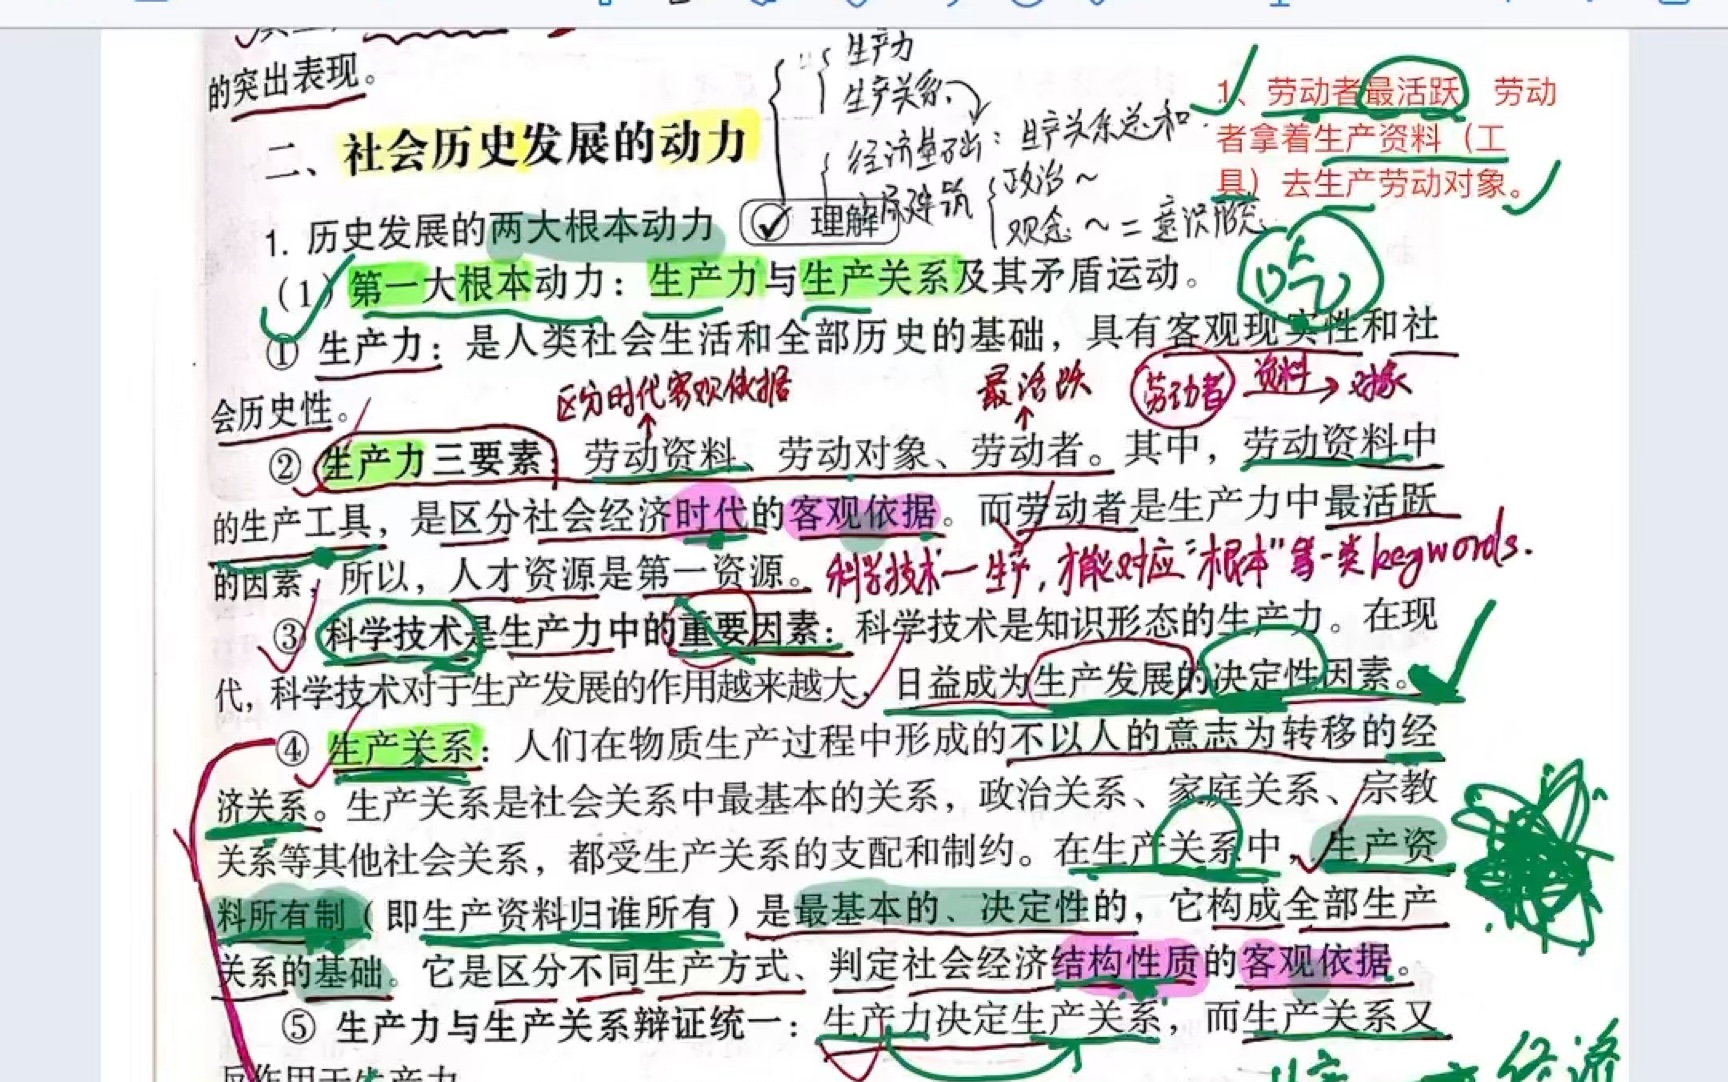 的突出表现。
生产力
生产关系
二、社会历史发展的动力
经济基础：生产关系总和
政治～
观念～＝意识形态
1、劳动者最活跃 劳动
者拿着生产资料（工
具）去生产劳动对象。
1. 历史发展的两大根本动力 理解
（1）第一大根本动力：生产力与生产关系及其矛盾运动。
① 生产力：是人类社会生活和全部历史的基础，具有客观现实性和社
会历史性。
区分时代客观依据 最活跃 劳动者 资料→对象
② 生产力三要素：劳动资料、劳动对象、劳动者。其中，劳动资料中
的生产工具，是区分社会经济时代的客观依据。而劳动者是生产力中最活跃
的因素，所以，人才资源是第一资源。
科学技术一生产，才能对应“根本”第一类keywords.
③ 科学技术是生产力中的重要因素：科学技术是知识形态的生产力。在现
代，科学技术对于生产发展的作用越来越大，日益成为生产发展的决定性因素。
④ 生产关系：人们在物质生产过程中形成的不以人的意志为转移的经
济关系。生产关系是社会关系中最基本的关系，政治关系、家庭关系、宗教
关系等其他社会关系，都受生产关系的支配和制约。在生产关系中，生产资
料所有制（即生产资料归谁所有）是最基本的、决定性的，它构成全部生产
关系的基础。它是区分不同生产方式、判定社会经济结构性质的客观依据。
⑤ 生产力与生产关系辩证统一：生产力决定生产关系，而生产关系又
反作用于生产力
经济